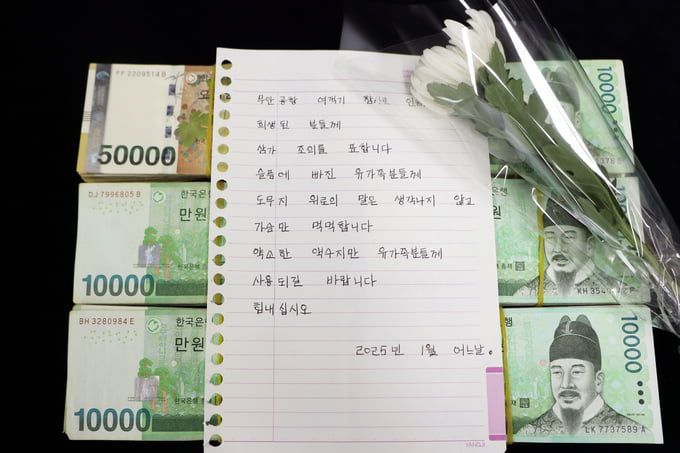 2209514 B
50000
DJ 7996805 B
한국은행
만원
10000
BH 3280984 E
한국은행
만원
10000
무안공항 여객기 참사로
희생된 분들께
삼가 조의를 표합니다
슬픔에 빠진 유가족분들께
도무지 위로의 말은 생각나지 않고
가슴만 먹먹합니다
약소한 액수지만 유가족분들께
사용되길 바랍니다
힘내십시오
2025년 1월 어느날.
YANGJI
10000
10000
LK 7737589 A